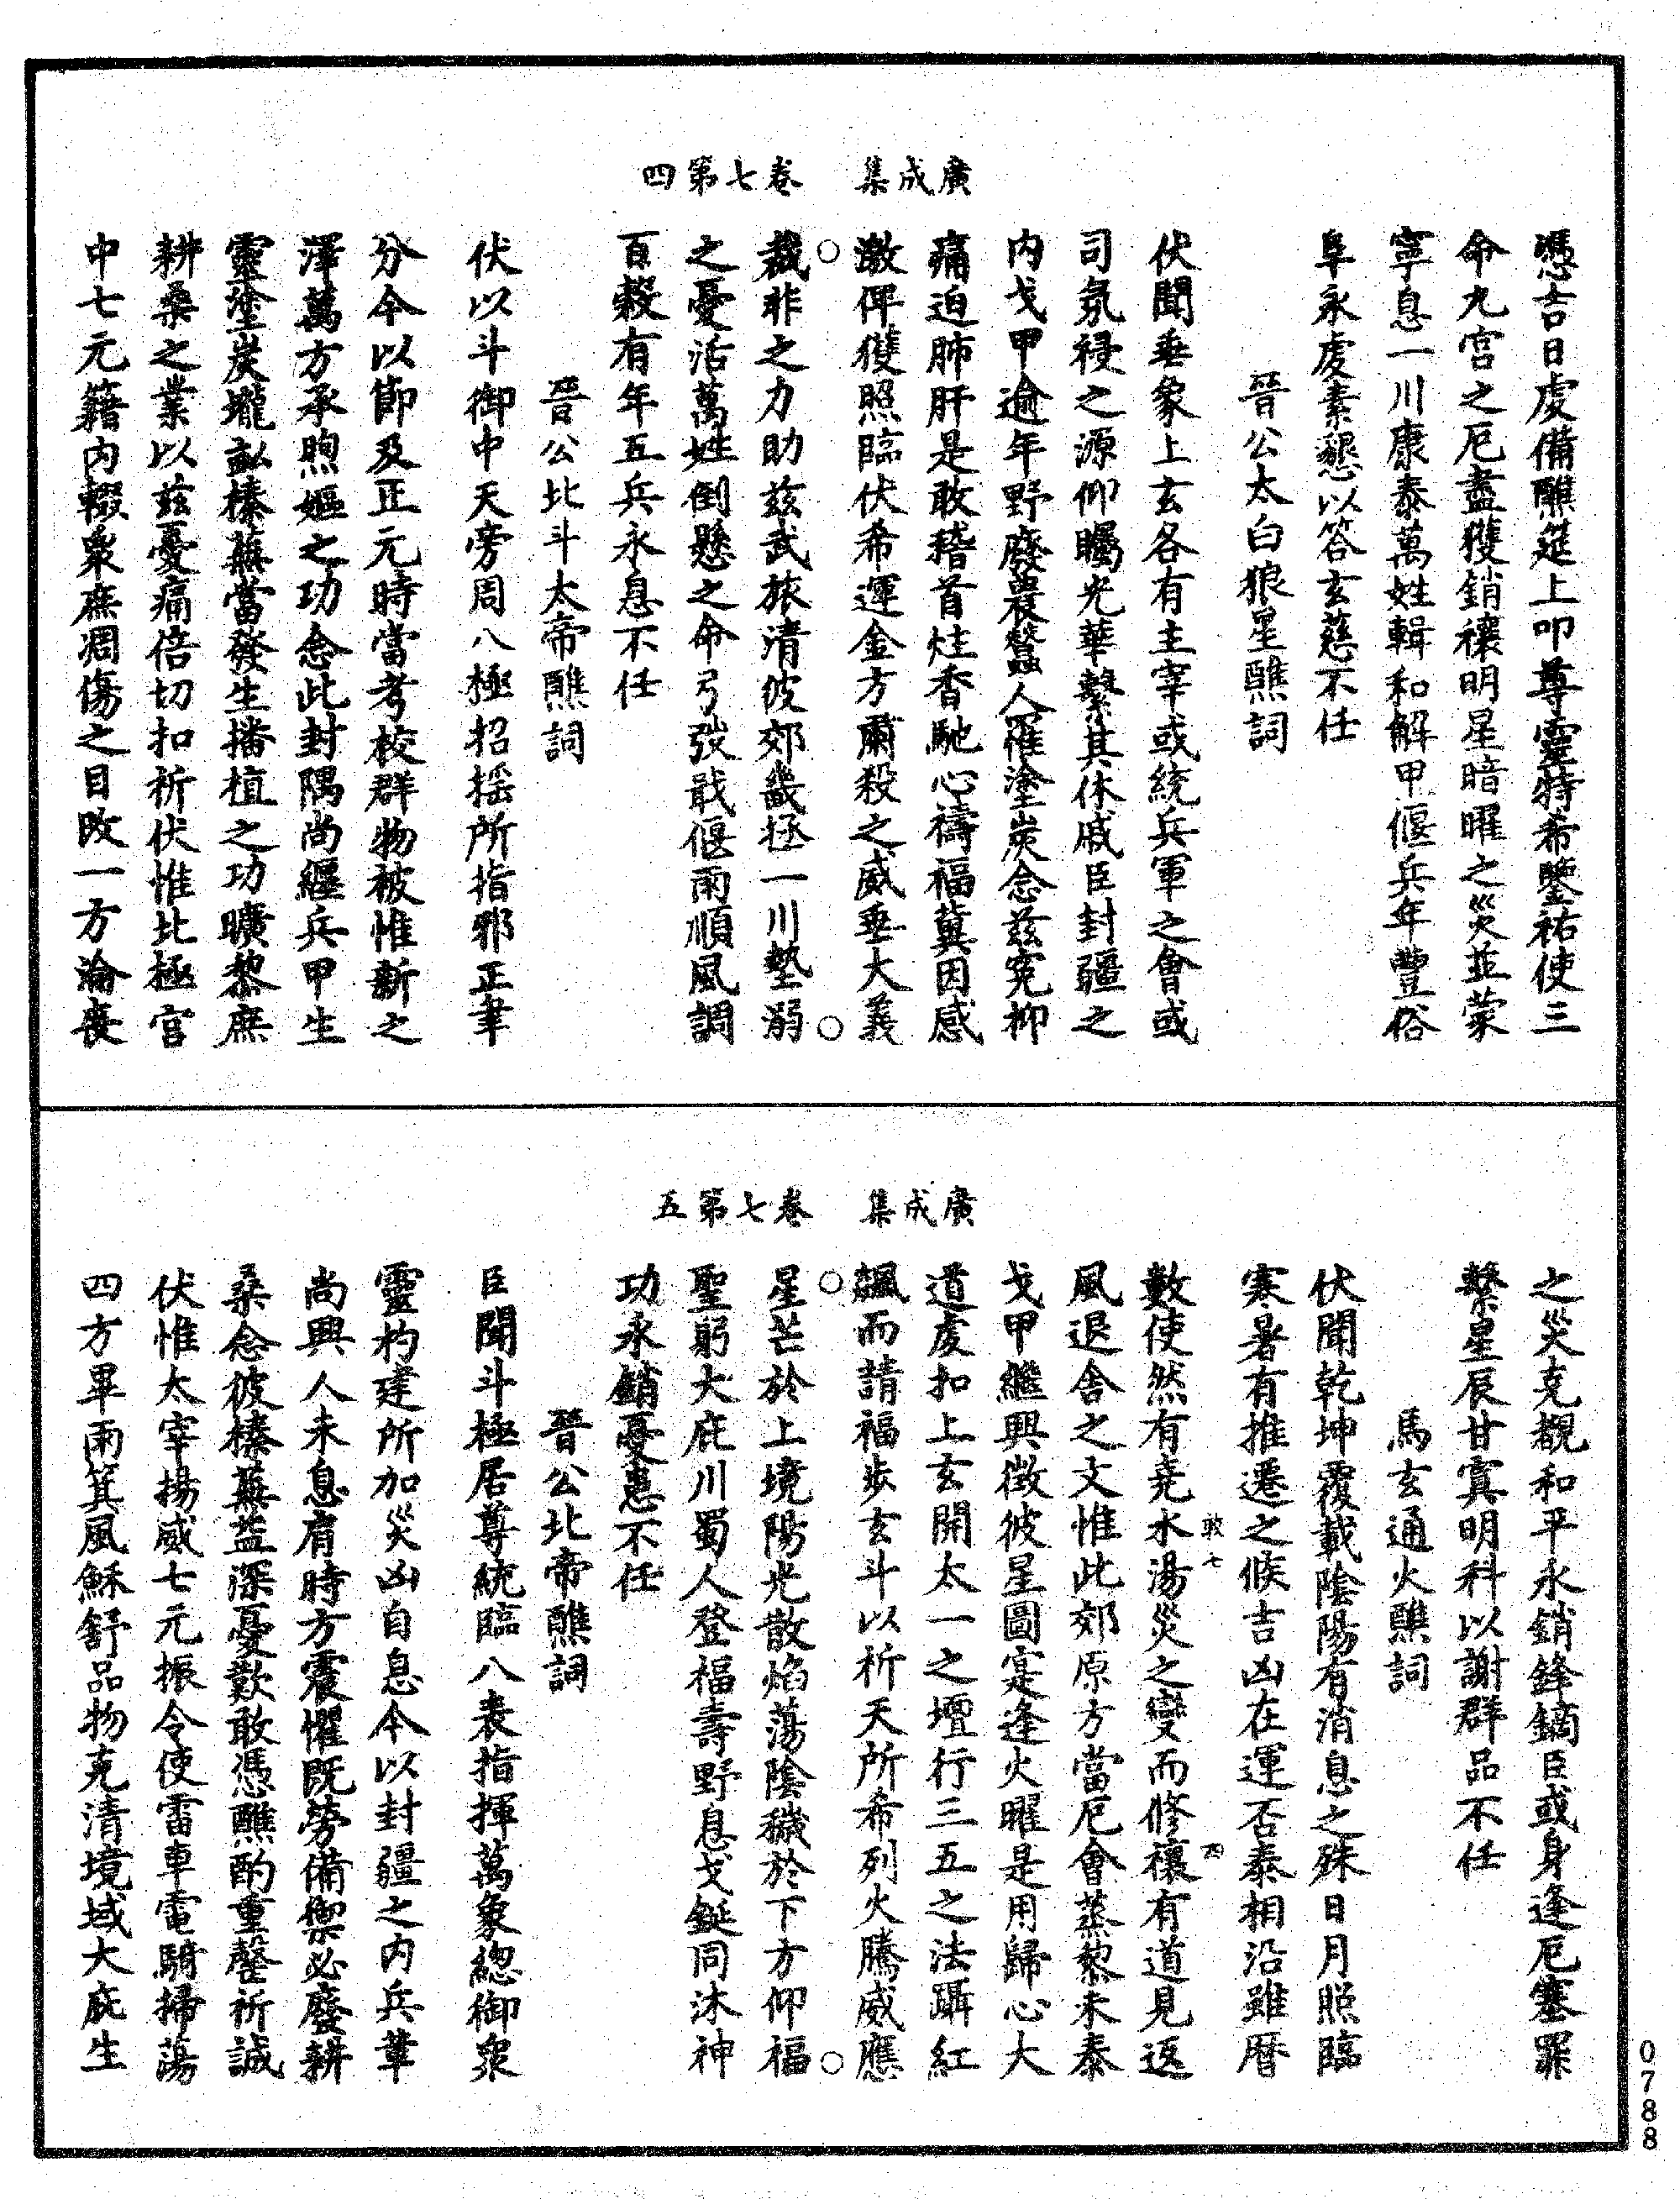 廣成集　卷七第四
憑吉日虔備醮筵上叩尊靈特希鑒祐使三
命九宮之厄盡獲銷禳明星暗曜之災並蒙
寧息一川康泰萬姓輯和解甲偃兵年豐俗
阜永虔素懇以答玄慈不任
晉公太白狼星醮詞
伏聞垂象上玄各有主宰或統兵軍之會或
司氛祲之源仰矚光華繫其休戚臣封疆之
内戈甲逾年野廢農蠶人罹塗炭念兹寃抑
痛迫肺肝是敢稽首炷香馳心禱福冀因感
激俾獲照臨伏希運金方肅殺之威垂大義
裁非之力助兹武旅清彼郊畿拯一川墊溺
之憂活萬姓倒懸之命弓弢戢偃雨順風調
百穀有年五兵永息不任
晉公北斗太帝醮詞
伏以斗御中天旁周八極招揺所指邪正聿
分今以節及正元時當考校群物被惟新之
澤萬方承煦嫗之功念此封隅尚纏兵甲生
靈塗炭壠畝榛蕪當發生播植之功曠黎庶
耕桑之業以兹憂痛倍切扣祈伏惟北極宮
中七元籍内輟衆庶凋傷之目改一方淪喪
廣成集　卷七第五
之災克覩和平永銷鋒鏑臣或身逢厄塞罪
繫星辰甘寘明科以謝群品不任
馬玄通火醮詞
伏聞乾坤覆載陰陽有消息之殊日月照臨
寒暑有推遷之候吉凶在運否泰相沿雖曆
敢七　四
數使然有堯水湯災之變而修禳有道見返
風退舍之文惟此郊原方當厄會蒸黎未泰
戈甲繼興徵彼星圖寔逢火曜是用歸心大
道虔扣上玄開太一之壇行三五之法躡紅
飆而請福步玄斗以祈天所希列火騰威應
星芒於上境陽光散焰蕩陰穢於下方仰福
聖躬大庇川蜀人登福壽野息戈鋋同沐神
功永銷憂恚不任
晉公北帝醮詞
臣聞斗極居尊統臨八表指揮萬象緫御衆
靈杓建所加災凶自息今以封疆之内兵革
尚興人未息肩時方震懼既勞備禦必廢耕
桑念彼榛蕪益深憂歎敢憑醮酌重罄祈誠
伏惟太宰揚威七元振令使雷車電騎掃蕩
四方畢雨箕風穌舒品物克清境域大庇生
0788